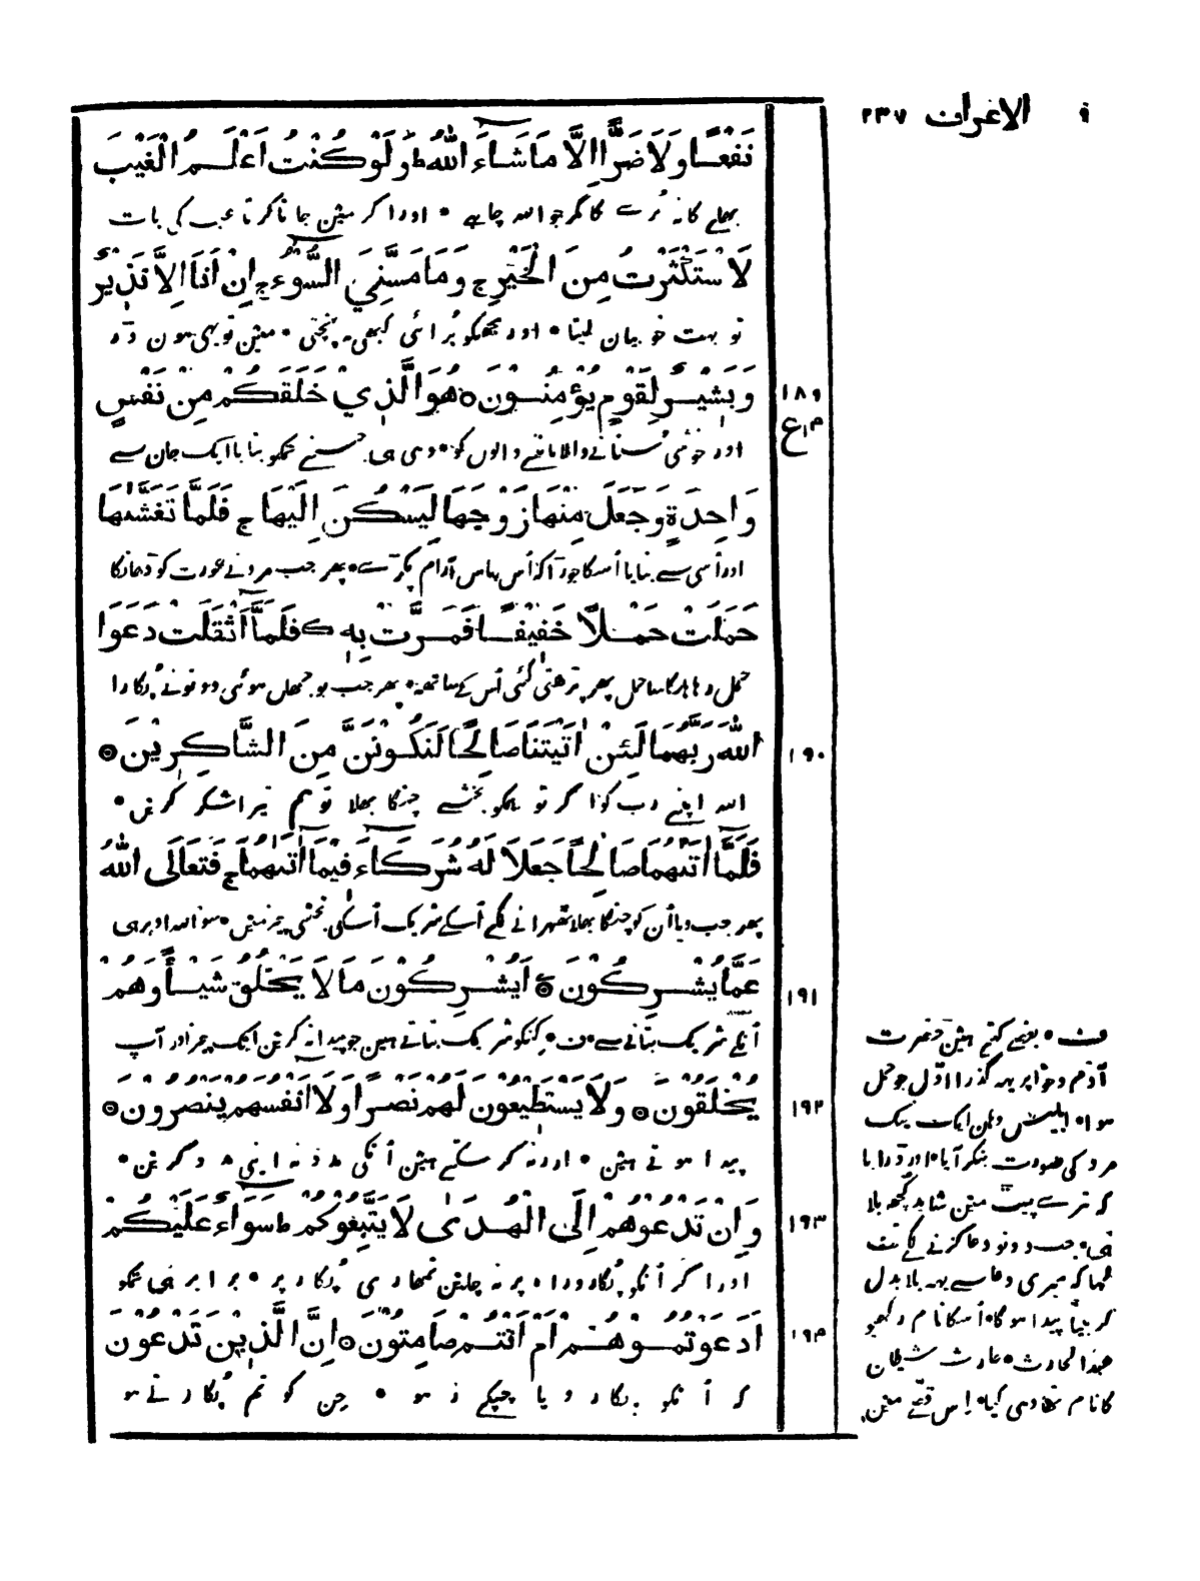 ۹ الاعراف ۲۳۷
نَفْعًا وَّلَا ضَرًّا اِلَّا مَا شَآءَ اللّٰهُ ؕ وَلَوْ كُنْتُ اَعْلَمُ الْغَيْبَ
بھلے کا نہ بُرے کا مگر جو اللہ چاہے ۰ اور اگر میں جانا کرتا غیب کی بات
لَاسْتَكْثَرْتُ مِنَ الْخَيْرِ ۚ وَمَا مَسَّنِيَ السُّوْٓءُ ۚ اِنْ اَنَا اِلَّا نَذِيْرٌ
تو بہت خوبیان لیتا ۰ اور مجھکو بُرائی کبھی نہ پہنچتی ۰ میں تو یہی ہون ڈر
وَّبَشِيْرٌ لِّقَوْمٍ يُّؤْمِنُوْنَ ○ هُوَ الَّذِيْ خَلَقَكُمْ مِّنْ نَّفْسٍ
۱۸۹
ع ۱۴
اور خوشی سنانے والا ماننے والوں کو ۰ وہی ہی جسنے تمکو بنایا ایک جان سے
وَّاحِدَةٍ وَّجَعَلَ مِنْهَا زَوْجَهَا لِيَسْكُنَ اِلَيْهَا ۚ فَلَمَّا تَغَشّٰهَا
اور اُسی سے بنایا اُسکا جوڑا کہ اُس پاس آرام پکڑے ۰ پھر جب مرد نے عورت کو ڈھانکا
حَمَلَتْ حَمْلًا خَفِيْفًا فَمَرَّتْ بِهٖ ۚ فَلَمَّآ اَثْقَلَتْ دَّعَوَا
حمل رہا ہلکا سا حمل پھر چلتی گئی اُس کے ساتھ ۰ پھر جب بوجھل ہوئی دونونے پُکارا
اللّٰهَ رَبَّهُمَا لَئِنْ اٰتَيْتَنَا صَالِحًا لَّنَكُوْنَنَّ مِنَ الشَّاكِرِيْنَ ○
۱۹۰
اللہ اپنے رب کو اگر تو ہمکو بخشے چنگا بھلا تو ہم تیرا شکر کرین ۰
فَلَمَّآ اٰتٰىهُمَا صَالِحًا جَعَلَا لَهٗ شُرَكَآءَ فِيْمَآ اٰتٰىهُمَا ۚ فَتَعٰلَى اللّٰهُ
پھر جب دیا اُن کو چنگا بھلا ٹھہرانے لگے اُسکے شریک اُسکی بخشی چیز میں ۰ سو اللہ اوپر ہی
عَمَّا يُشْرِكُوْنَ ○ اَيُشْرِكُوْنَ مَا لَا يَخْلُقُ شَيْـًٔا وَّهُمْ
۱۹۱
اُنکے شریک بتانے سے ۰ ف ۰ کنکو شریک بتاتے ہین جو پیدا نہ کرین ایک چیز اور آپ
يُخْلَقُوْنَ ○ وَلَا يَسْتَطِيْعُوْنَ لَهُمْ نَصْرًا وَّلَآ اَنْفُسَهُمْ يَنْصُرُوْنَ ○
۱۹۲
پیدا ہوتے ہین ۰ اور نہ کر سکتے ہین اُنکی مدد نہ اپنی مدد کرین ۰
وَاِنْ تَدْعُوْهُمْ اِلَى الْهُدٰى لَا يَتَّبِعُوْكُمْ ؕ سَوَآءٌ عَلَيْكُمْ
۱۹۳
اور اگر اُنکو پُکارو راہ پر نہ چلین تمھاری پُکار پر ۰ برابر ہی تمکو
اَدَعَوْتُمُوْهُمْ اَمْ اَنْتُمْ صَامِتُوْنَ ○ اِنَّ الَّذِيْنَ تَدْعُوْنَ
۱۹۴
کہ اُنکو پکارو یا چپکے رہو ۰ جن کو تم پُکارتے ہو
ف ۰ بعضے کہتے ہین حضرت
آدم و حوّا پر یہہ گذرا اوّل جو حمل
ہوا ۰ ابلیس وہان ایک نیک
مرد کی صورت بنکر آیا ۰ اور ڈرایا
کہ تیرے پیٹ مین شاید کچھ بلا
ہی ۰ جب دونو دعا کرنے لگے تب
کہا کہ میری دعا سے یہہ بلا بدل
کر بیٹا پیدا ہوگا ۰ اُسکا نام رکھیو
عبد الحارث ۰ حارث شیطان
کا نام تھا وہی کیا ۰ اس قصّے مین